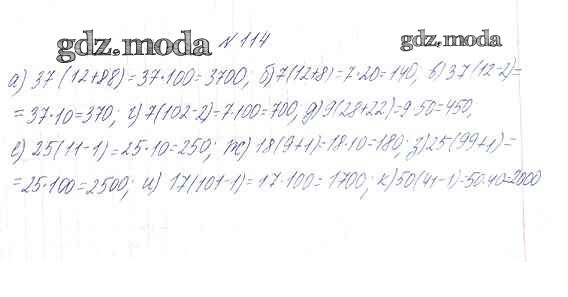 gdz.moda №114 gdz.moda
а) 37(12+88)=37·100=3700; б) 7(12+8)=7·20=140; в) 37(12-2)=
=37·10=370; г) 7(102-2)=7·100=700; д) 9(28+22)=9·50=450;
е) 25(11-1)=25·10=250; ж) 18(9+1)=18·10=180; з) 25(99+1)=
=25·100=2500; и) 17(101-1)=17·100=1700; к) 50(41-1)=50·40=2000